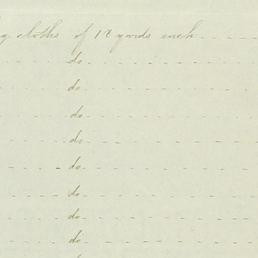 cloths of 12 yards each
do
do
do
do
do
do
do
do